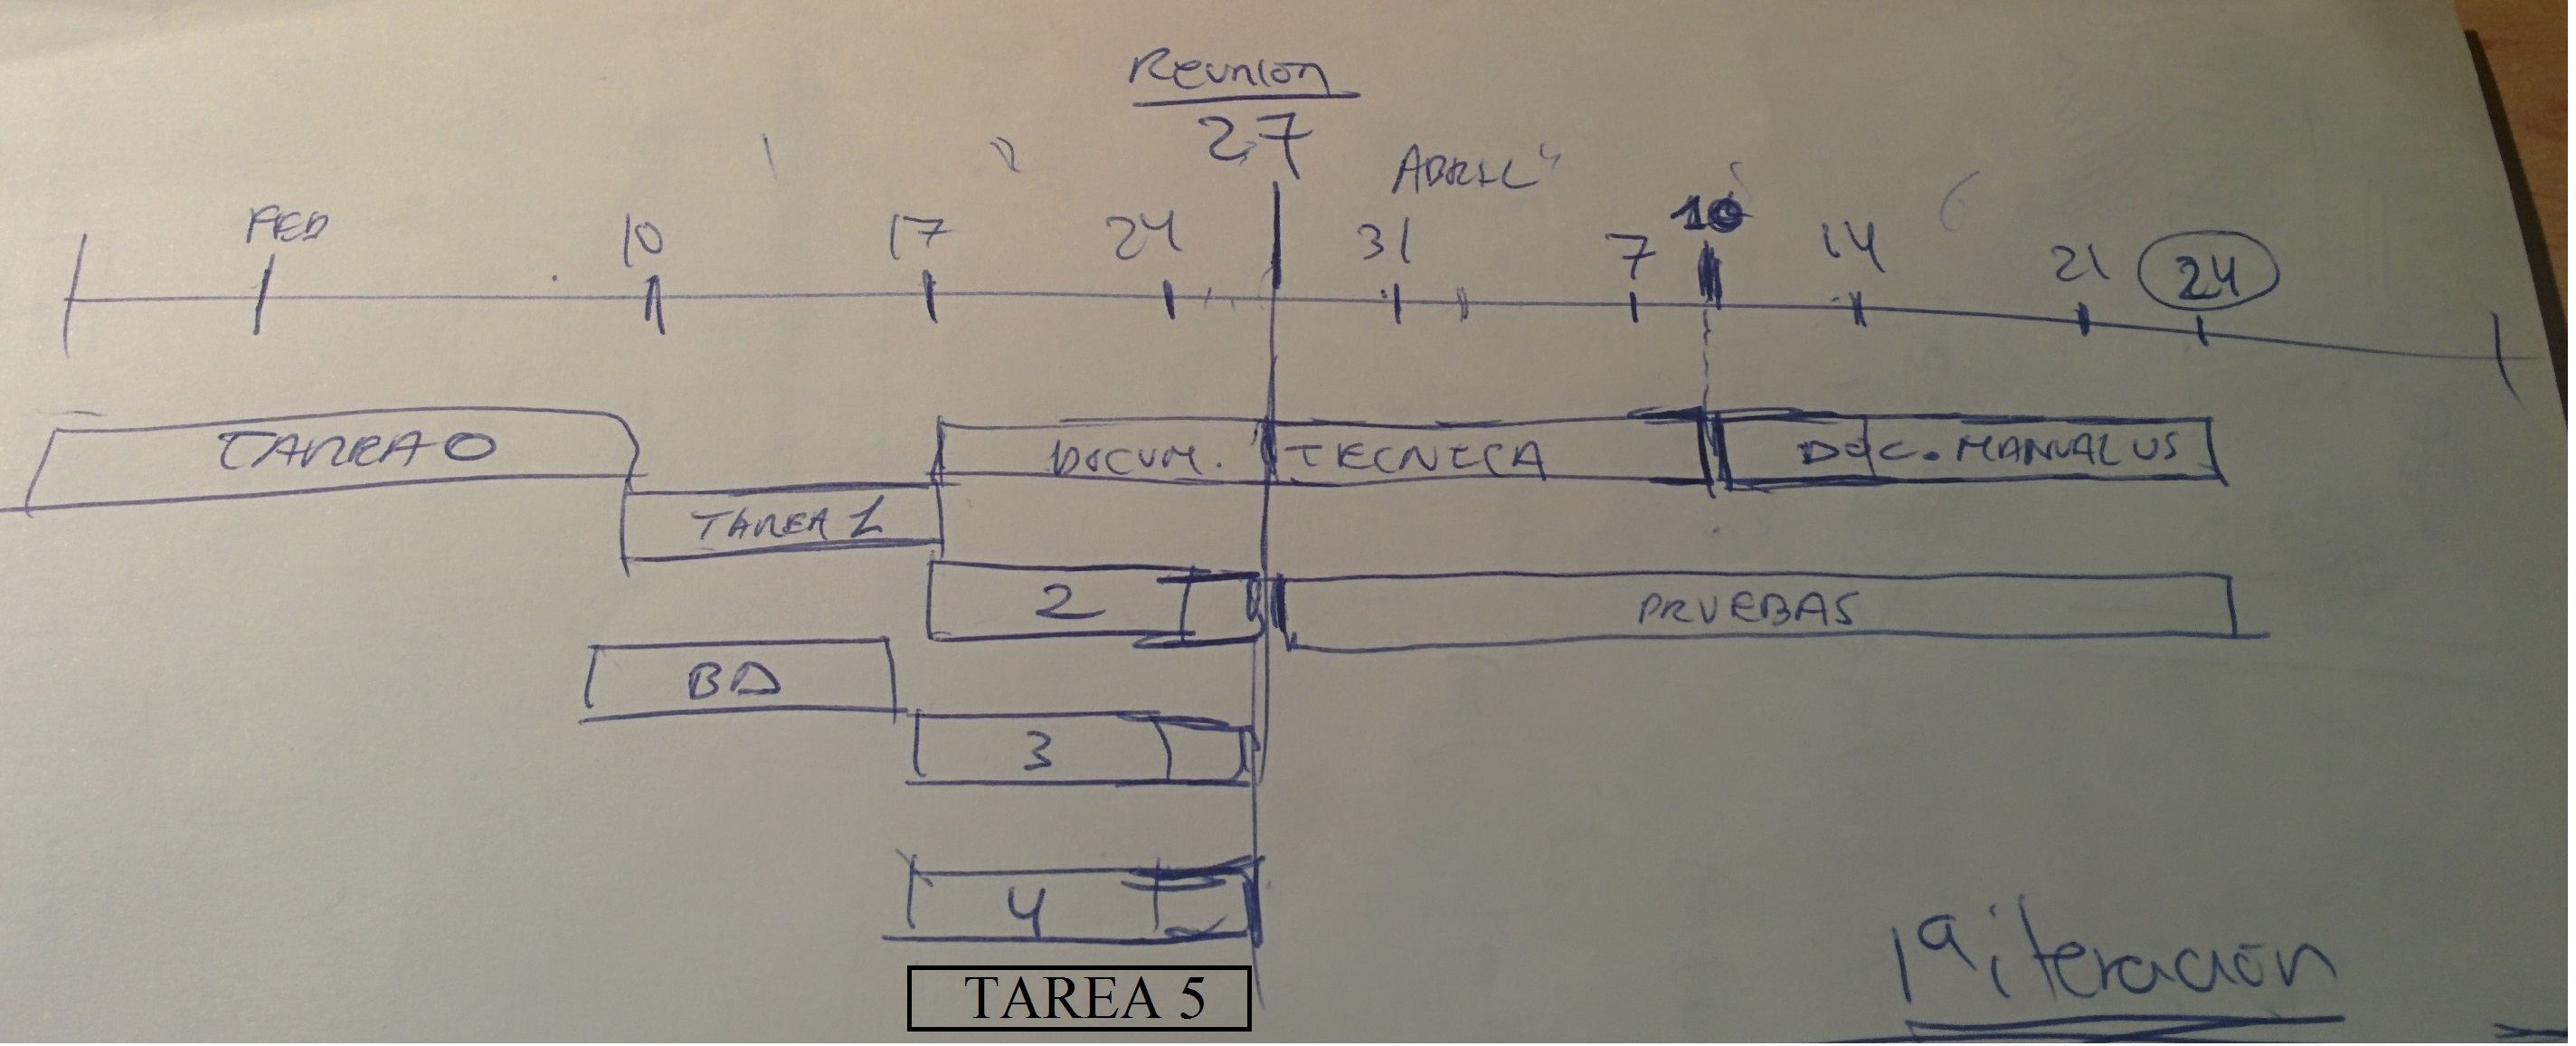 Reunion
27
ABRIL
FEB
10 17 24 31 7 10 14 21 24
TAREA 0
DOCUM. TECNICA
DOC. MANUAL US
TAREA 1
2
PRUEBAS
BD
3
4
TAREA 5
1ª iteración